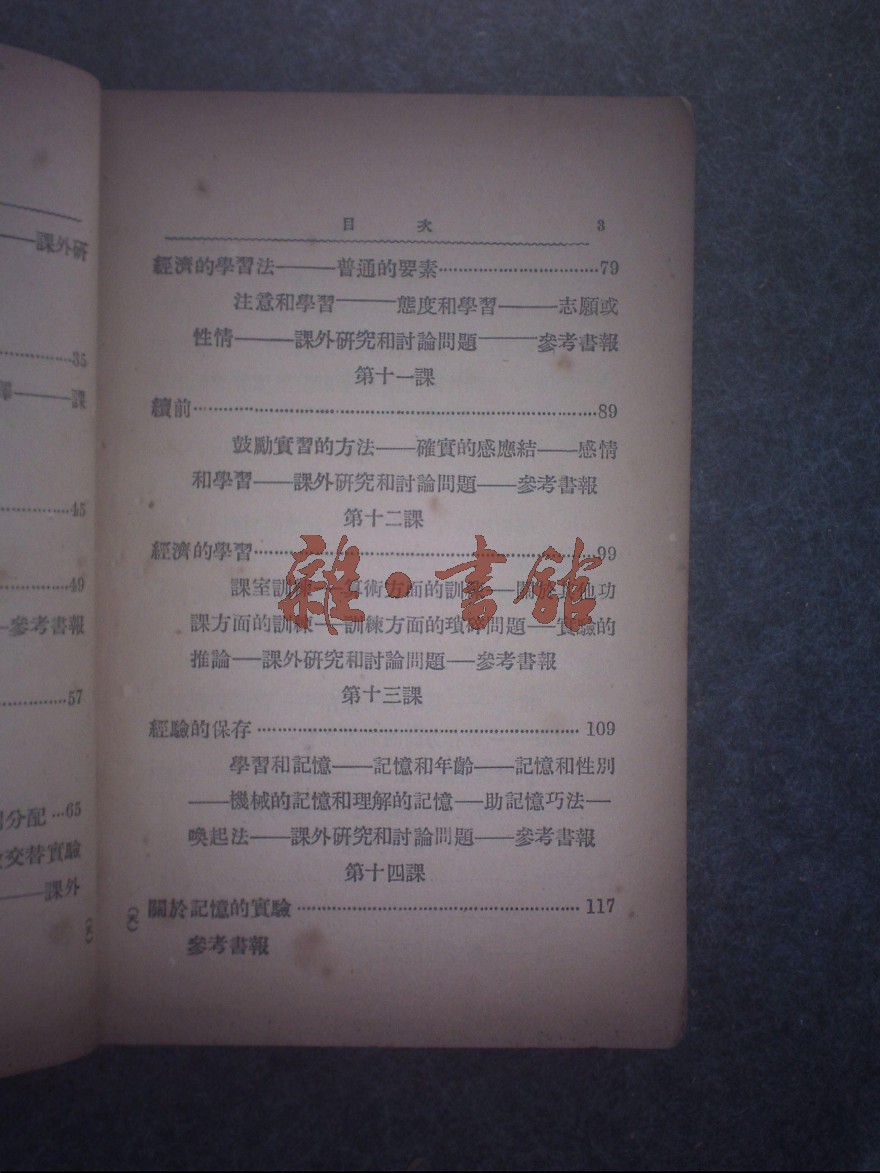 課外研
35
課
45
49
參考書報
57
分配…65
交替實驗
——課外
目 次 3
經濟的學習法——普通的要素……79
注意和學習——態度和學習——志願或
性情——課外研究和討論問題——參考書報
第十一課
續前……89
鼓勵實習的方法——確實的感應結——感情
和學習——課外研究和討論問題——參考書報
第十二課
經濟的學習……99
課室訓練——算術方面的訓練——關於其他功
課方面的訓練——訓練方面的瑣碎問題——實驗的
推論——課外研究和討論問題——參考書報
第十三課
經驗的保存……109
學習和記憶——記憶和年齡——記憶和性別
——機械的記憶和理解的記憶——助記憶巧法——
喚起法——課外研究和討論問題——參考書報
第十四課
關於記憶的實驗……117
參考書報
雜·書館